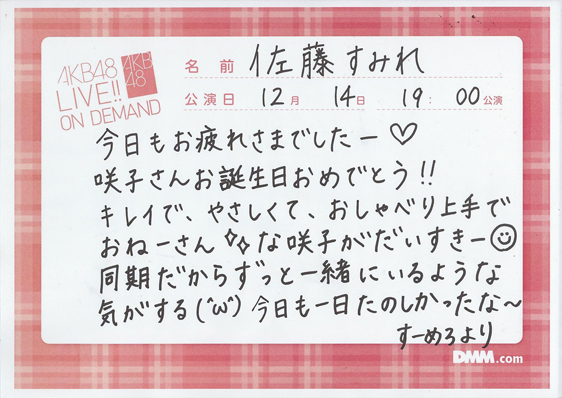 AKB48
LIVE!!
ON DEMAND
AKB
48
名前 佐藤すみれ
公演日 12月 14日 19:00公演
今日もお疲れさまでしたー♡
咲子さんお誕生日おめでとう!!
キレイで、やさしくて、おしゃべり上手で
おねーさん✧✧な咲子がだいすきー☺
同期だからずっと一緒にいるような
気がする(^ω^)今日も一日たのしかったな〜
すーめろより
DMM.com